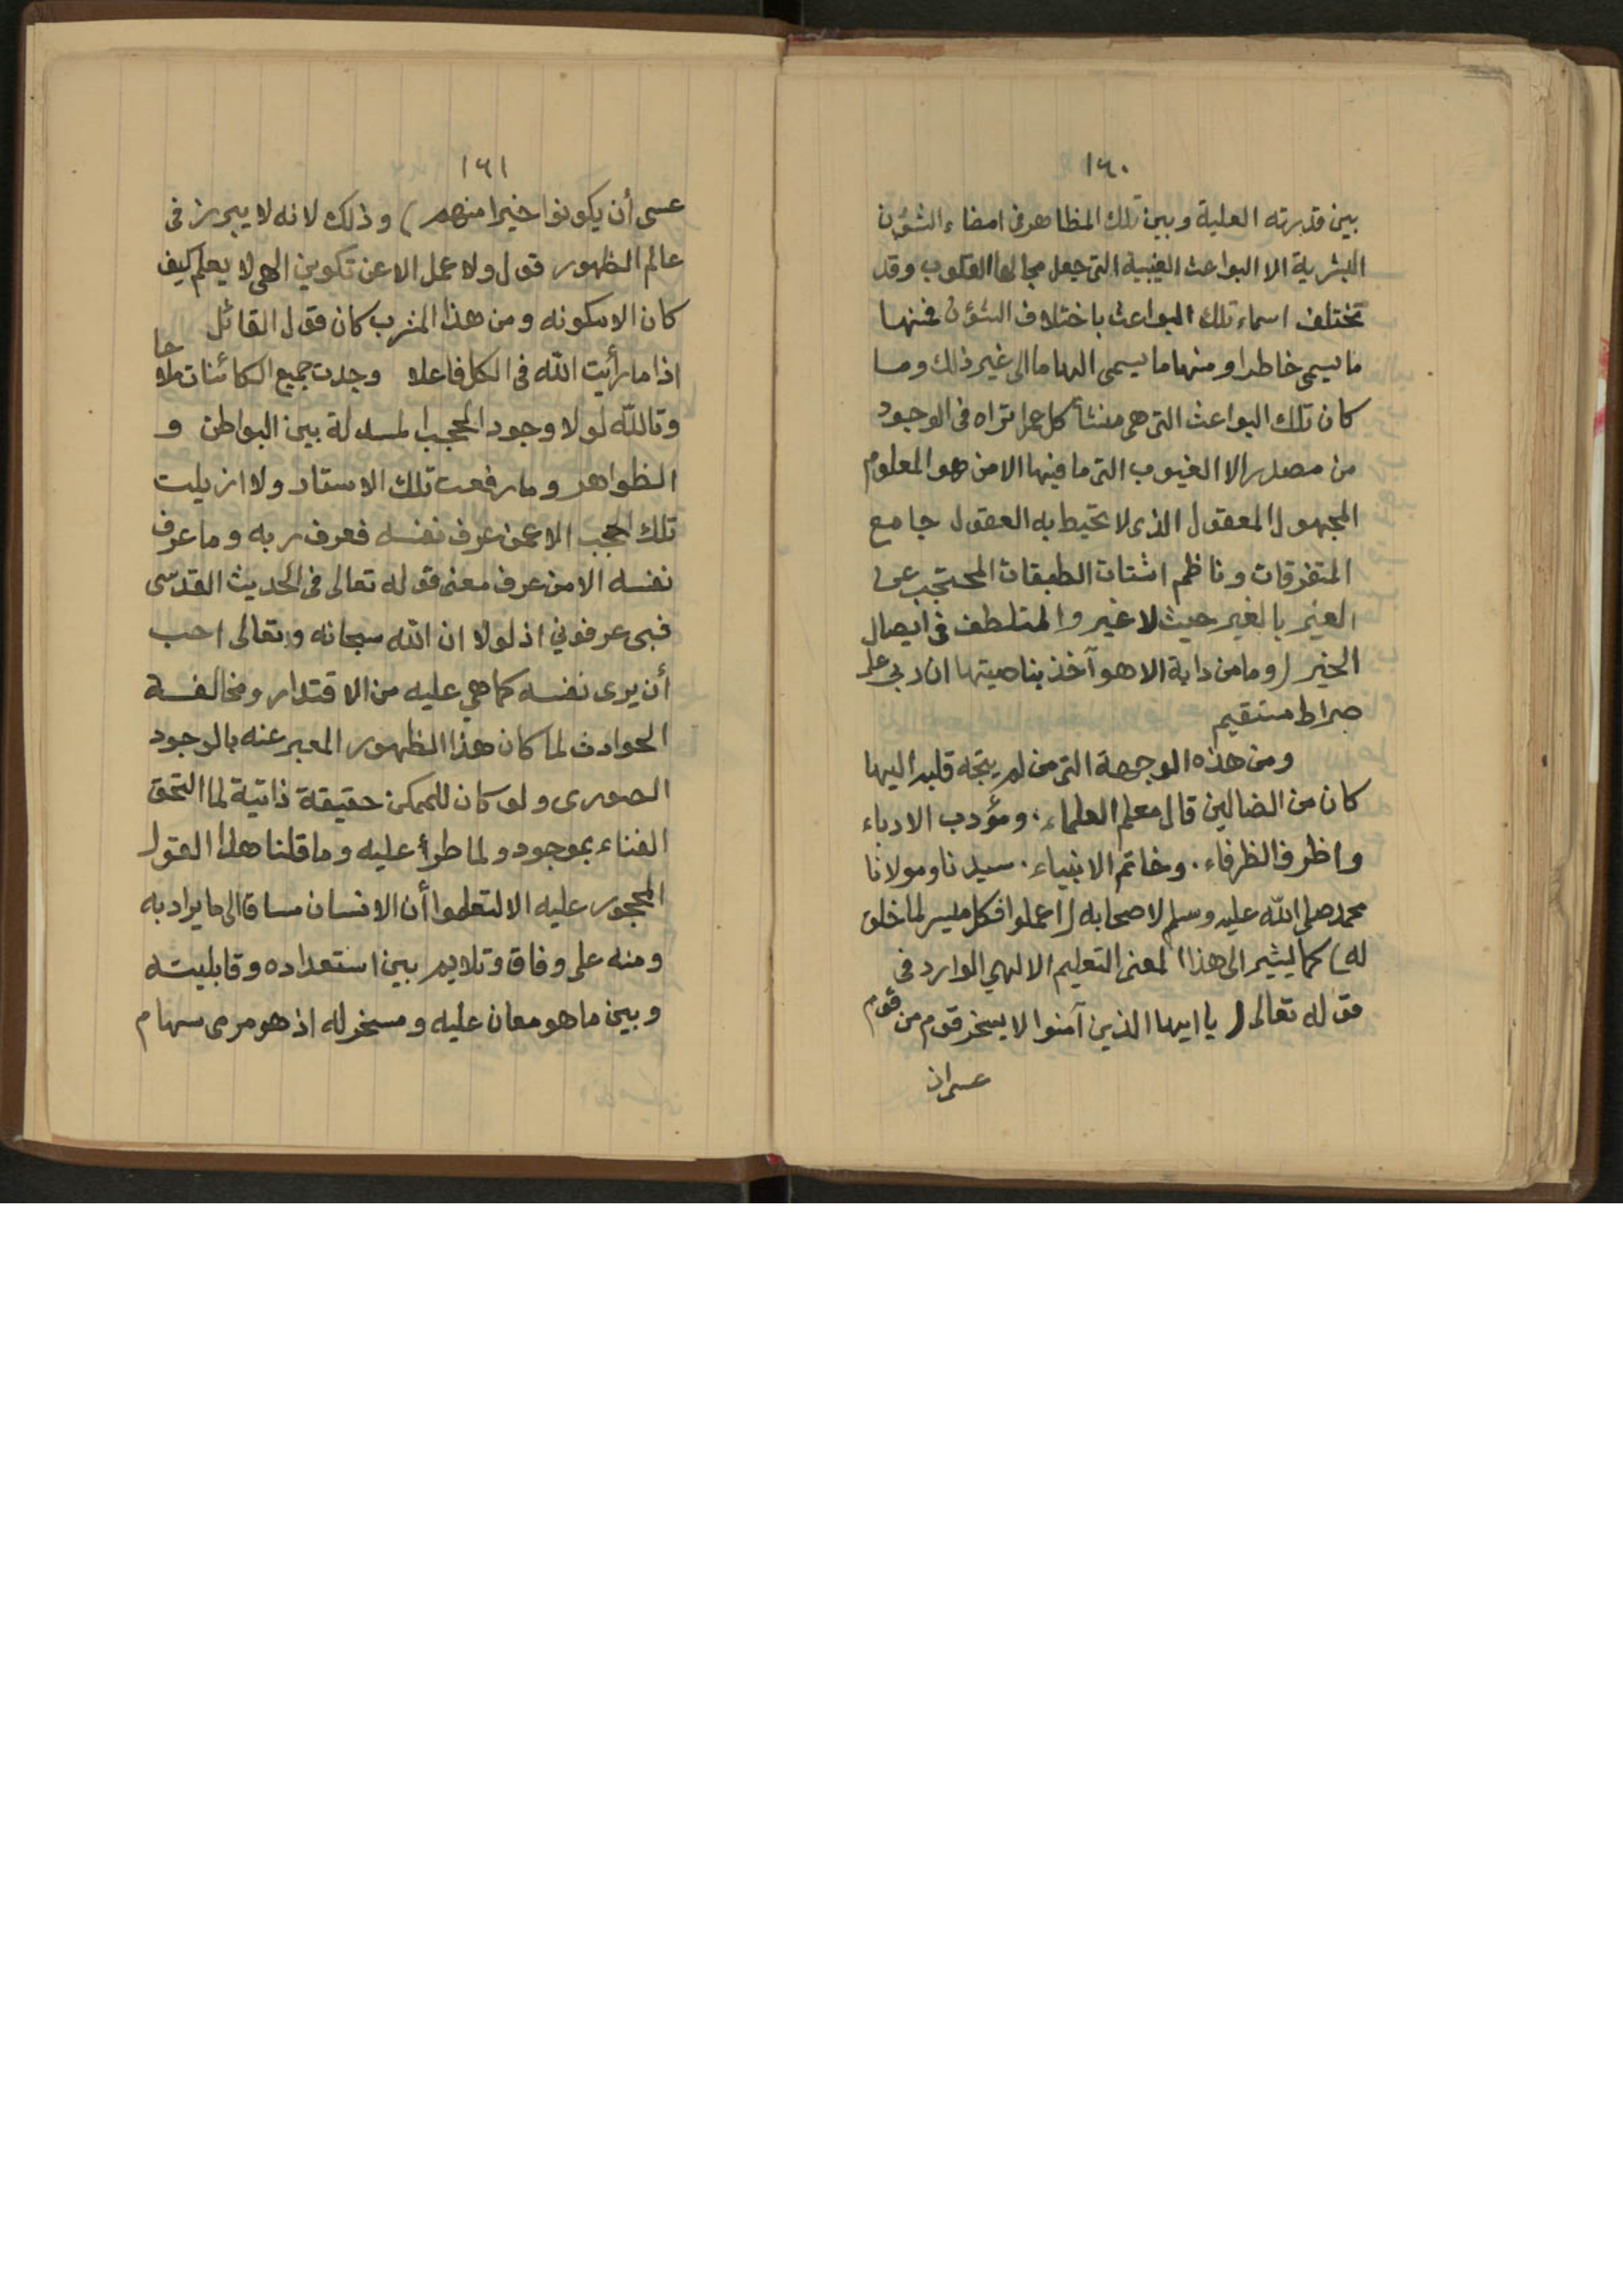 ١٦٠
بين قدرته العلية وبين تلك المظاهر فى امضاء الشؤن
البشرية الا البواعث الغيبية التى جعل مجالها القلوب وقد
تختلف اسماء تلك البواعث باختلاف الشؤن فمنها
ما يسمى خاطرا ومنها ما يسمى الهاما الى غير ذلك وما
كان تلك البواعث التى هى منشأ كل ما تراه فى الوجود
من مصدر الا الغيوب التى ما فيها الا من هو المعلوم
المجهول المعقول الذى لا تحيط به العقول جامع
المتفرقات وناظم اشتات الطبقات المحتجب عن
الغير بالغير حيث لا غير والمتلطف فى ايصال
الخير (وما من دابة الا هو آخذ بناصيتها ان ربى على
صراط مستقيم
ومن هذه الوجهة التى من لم يتجه قلبه اليها
كان من الضالين قال معلم العلماء. ومؤدب الادباء
واظرف الظرفاء. وخاتم الانبياء. سيدنا ومولانا
محمد صلى الله عليه وسلم لاصحابه (اعملوا فكل ميسر لما خلق
له) كما يشير الى هذا المعنى التعليم الالهي الوارد فى
قوله تعالى (يا ايها الذين آمنوا لا يسخر قوم من قوم
عسى ان
١٦١
عسى أن يكونوا خيرا منهم) وذلك لانه لا يبرز فى
عالم الظهور قول ولا عمل الا عن تكوين الهى لا يعلم كيف
كان الا مكونه ومن هذا المشرب كان قول القائل
اذا ما رأيت الله فى الكل فاعلا وجدت جميع الكائنات ملاحا
وتالله لولا وجود الحجب المسدلة بين البواطن و
الظواهر وما رفعت تلك الاستار ولا ازيلت
تلك الحجب الا عمن عرف نفسه فعرف ربه وما عرف
نفسه الا من عرف معنى قوله تعالى فى الحديث القدسى
فبى عرفوني اذ لولا ان الله سبحانه وتعالى احب
أن يرى نفسه كما هي عليه من الاقتدار ومخالفة
الحوادث لما كان هذا الظهور المعبر عنه بالوجود
الصورى ولو كان للممكن حقيقة ذاتية لما التحق
الفناء بموجود ولما طرأ عليه وما قلنا هذا القول
المحجور عليه الا لتعلموا أن الانسان مساق الى ما يراد به
ومنه على وفاق وتلايم بين استعداده وقابليته
وبين ما هو معان عليه ومسخر له اذ هو مرمى سهام